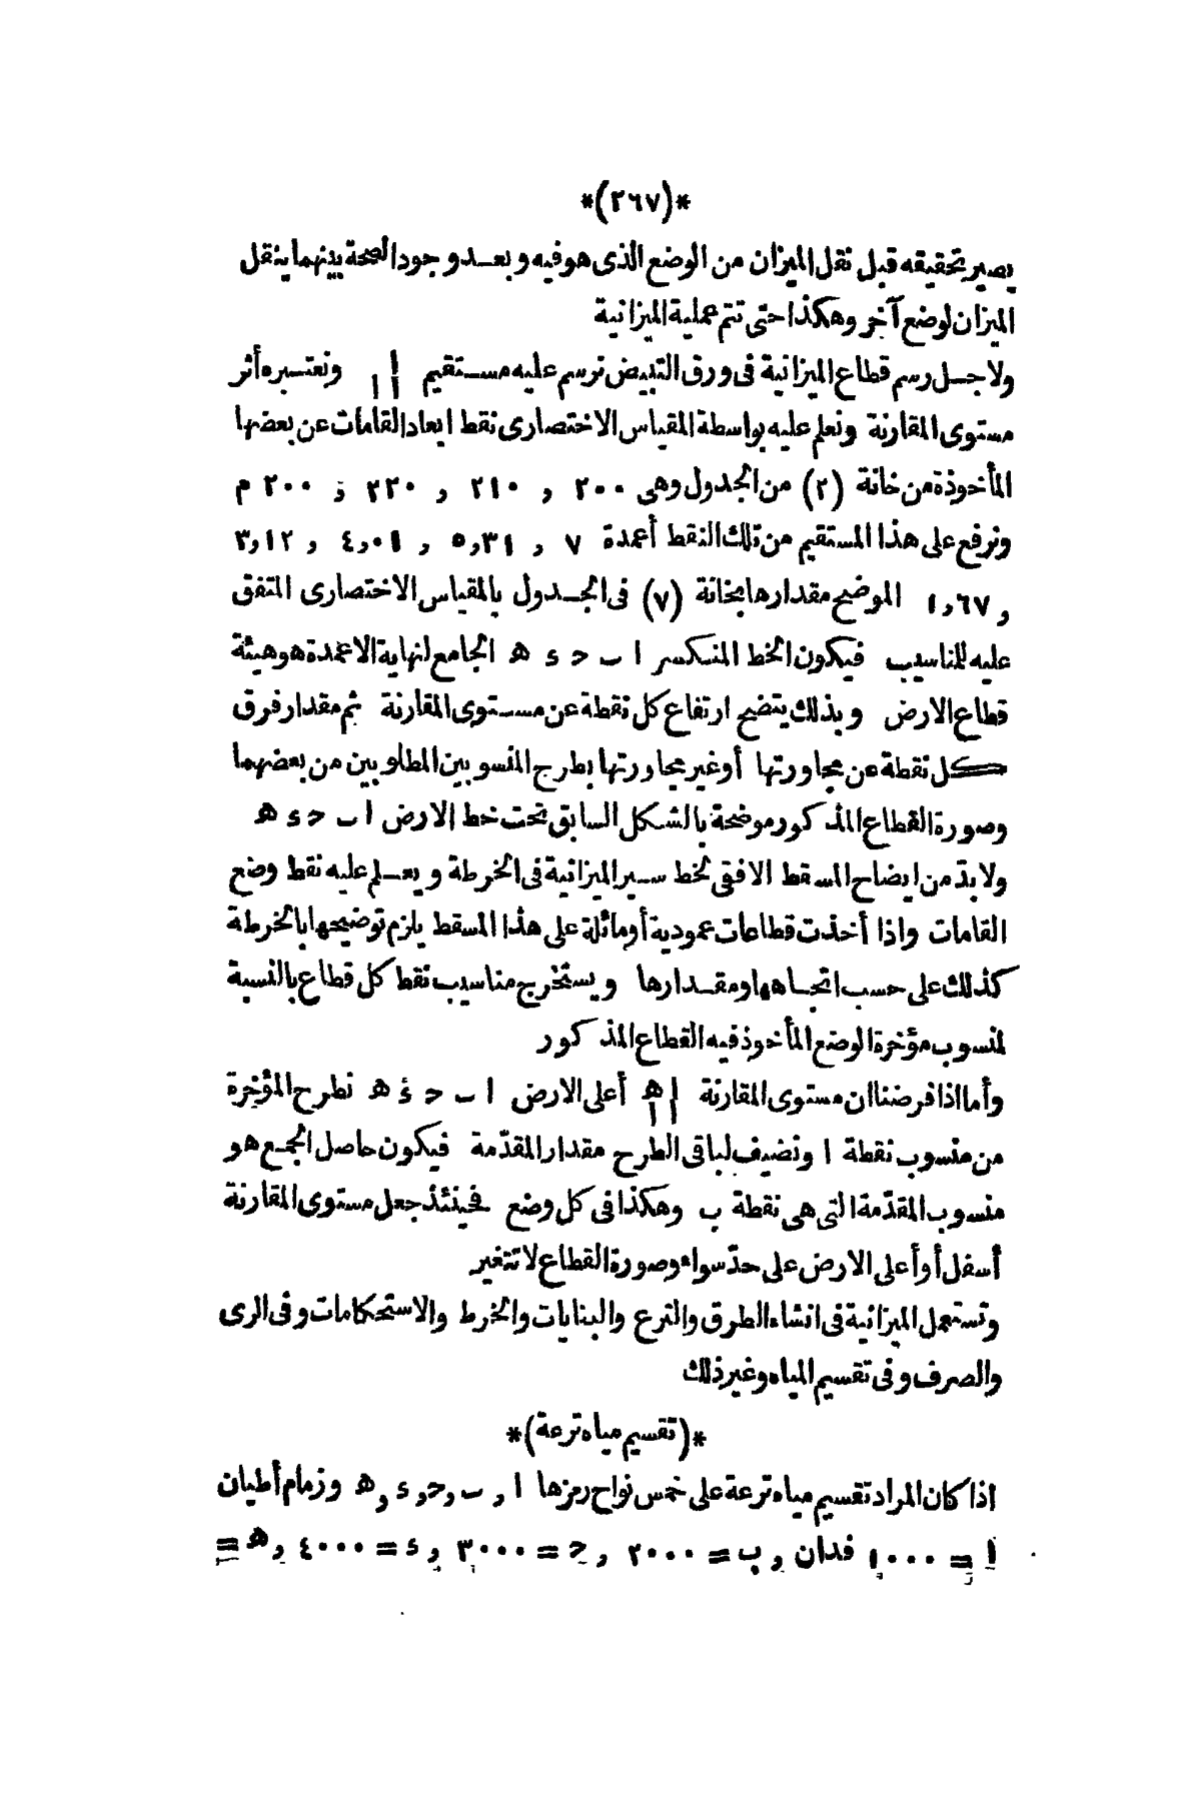 *(٢٦٧)*
يصير تحقيقه قبل نقل الميزان من الوضع الذى هو فيه وبعد وجود الصحة بينهما ينقل
الميزان لوضع آخر وهكذا حتى تتم عملية الميزانية
ولاجل رسم قطاع الميزانية فى ورق التبييض نرسم عليه مستقيم ونعتبره أثر
مستوى المقارنة ونعلم عليه بواسطة المقياس الاختصارى نقط ابعاد القامات عن بعضها
المأخوذة من خانة (٢) من الجدول وهى ٢٠٠ و ٢١٠ و ٢٢٠ و ٢٠٠ م
ونرفع على هذا المستقيم من تلك النقط أعمدة ٧ و ٥,٣١ و ٤,٠١ و ٣,١٢
و ١,٦٧ الموضح مقدارها بخانة (٧) فى الجدول بالمقياس الاختصارى المتفق
عليه للمناسيب فيكون الخط المنكسر ا ب ح ء ه الجامع لنهاية الاعمدة هو هيئة
قطاع الارض وبذلك يتضح ارتفاع كل نقطة عن مستوى المقارنة ثم مقدار فرق
كل نقطة عن مجاورتها أو غير مجاورتها بطرح المنسوبين المطلوبين من بعضهما
وصورة القطاع المذكور موضحة بالشكل السابق تحت خط الارض ا ب ح ء ه
ولا بدّ من ايضاح المسقط الافقى لخط سير الميزانية فى الخرطة ويعلم عليه نقط وضع
القامات واذا أخذت قطاعات عمودية أو مائلة على هذا المسقط يلزم توضيحها بالخرطة
كذلك على حسب اتجاهها ومقدارها ويستخرج مناسيب نقط كل قطاع بالنسبة
لمنسوب مؤخرة الوضع المأخوذ فيه القطاع المذكور
وأما اذا فرضنا ان مستوى المقارنة أعلى الارض ا ب ح ء ه نطرح المؤخرة
من منسوب نقطة ا ونضيف لباقى الطرح مقدار المقدّمة فيكون حاصل الجمع هو
منسوب المقدّمة التى هى نقطة ب وهكذا فى كل وضع فحينئذ جعل مستوى المقارنة
أسفل أو أعلى الارض على حدّ سواء وصورة القطاع لا تتغير
وتستعمل الميزانية فى انشاء الطرق والترع والبنايات والخرط والاستحكامات وفى الرى
والصرف وفى تقسيم المياه وغير ذلك
*(تقسيم مياه ترعة)*
اذا كان المراد تقسيم مياه ترعة على خمس نواح رمزها ا و ب و ح و ء و ه وزمام أطيان
ا = ١٠٠٠ فدان و ب = ٢٠٠٠ و ح = ٣٠٠٠ و ء = ٤٠٠٠ و ه =